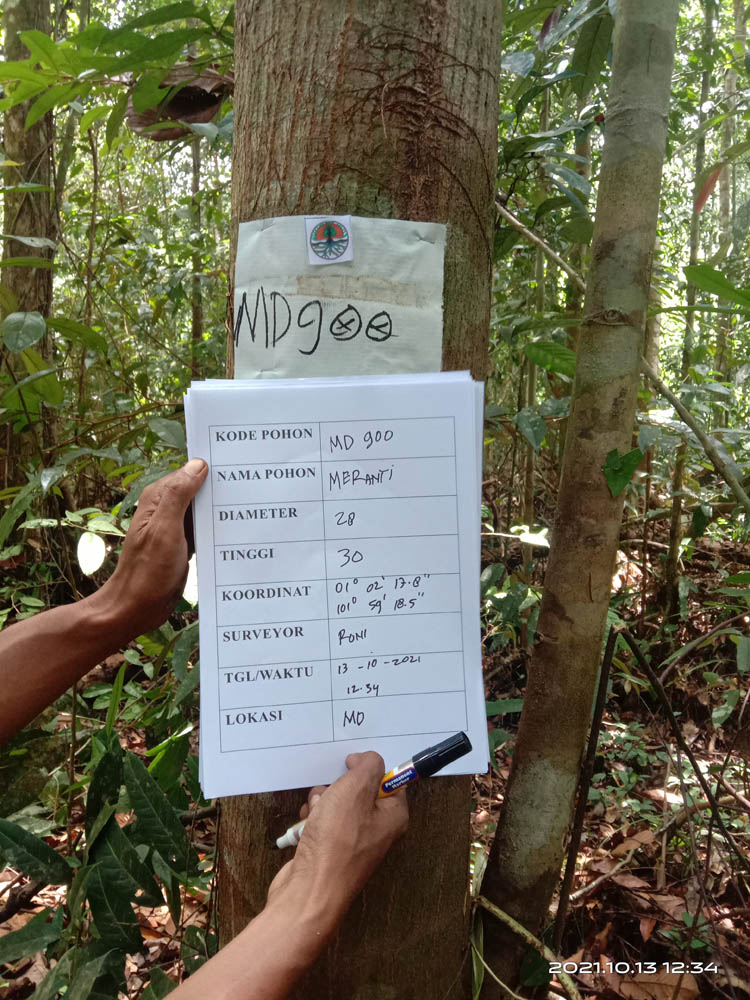 MD900
KODE POHON MD 900
NAMA POHON MERANTI
DIAMETER 28
TINGGI 30
KOORDINAT 01° 02' 17.8"
101° 59' 18.5"
SURVEYOR RONI
TGL/WAKTU 13-10-2021
12.34
LOKASI MD
Permanent
Marker
2021.10.13 12:34